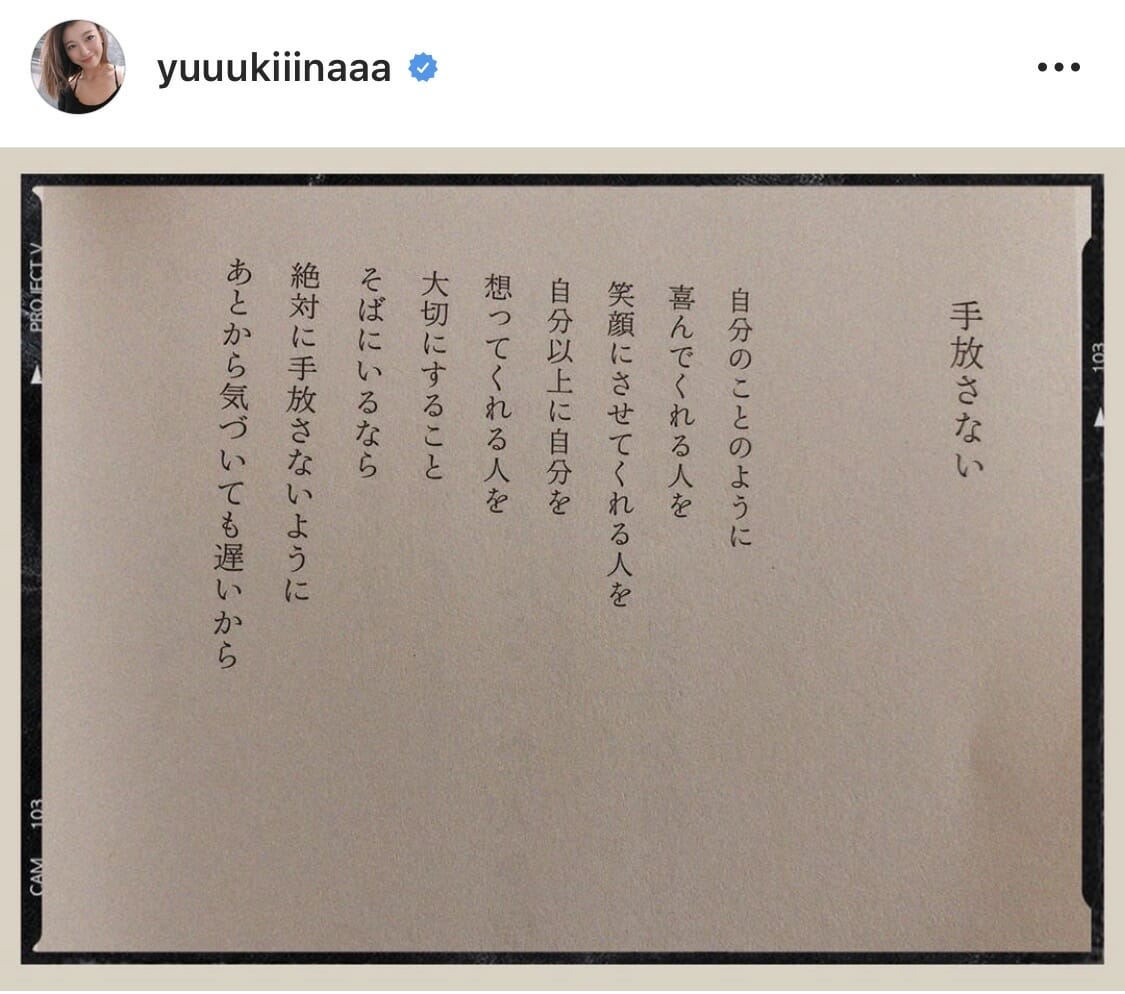 yuuukiiinaaa
手放さない
自分のことのように
喜んでくれる人を
笑顔にさせてくれる人を
自分以上に自分を
想ってくれる人を
大切にすること
そばにいるなら
絶対に手放さないように
あとから気づいても遅いから
PROJECT V
CAM 103
103